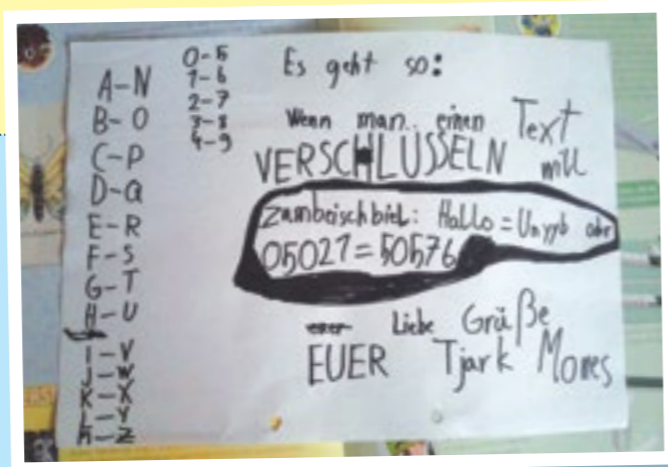 A-N
B-O
C-P
D-Q
E-R
F-S
G-T
H-U
I-V
J-W
K-X
L-Y
M-Z
0-5
1-6
2-7
3-8
4-9
Es geht so:
Wenn man einen Text
VERSCHLÜSSELN will
Zumbeischbiel: Hallo = Unyyb odr
05021=50576
Liebe Grüße
EUER Tjark Mones